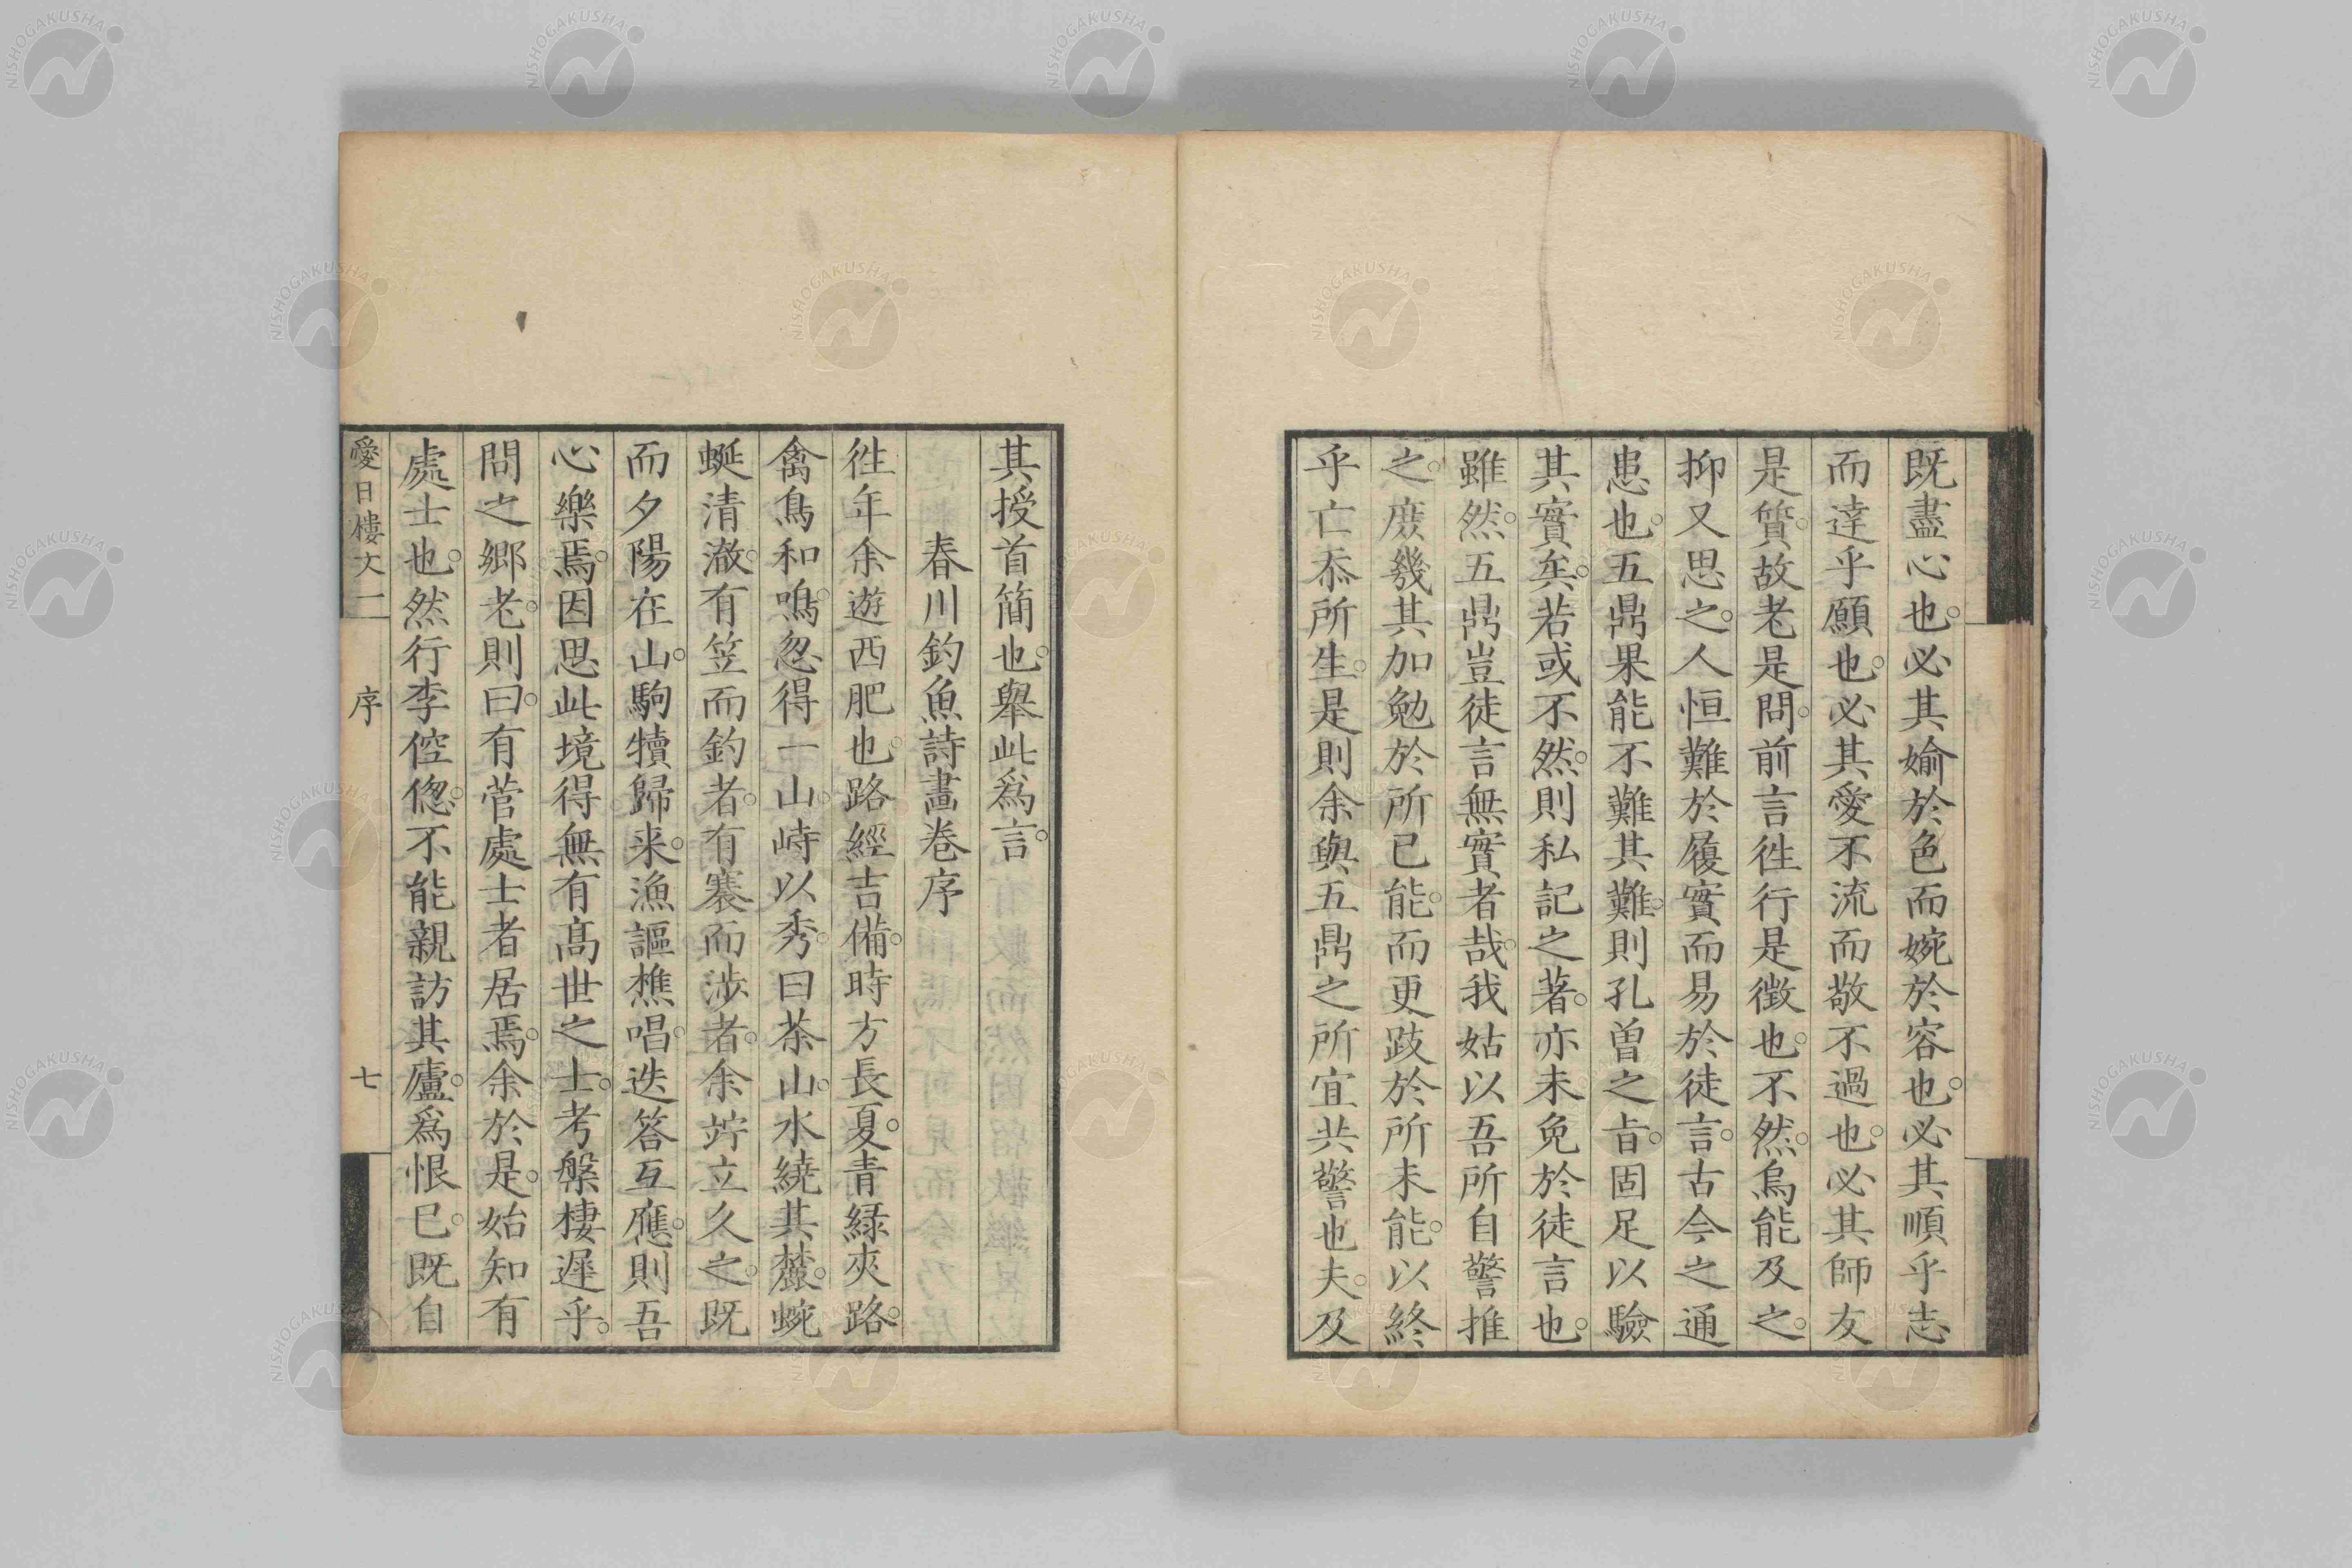 既盡心也。必其婾於色而婉於容也。必其順乎志
而達乎願也。必其愛不流而敬不過也。必其師友
是質。故老是問。前言徃行是徴也。不然。烏能及之。
抑又思之。人恒難於履實而易於徒言。古今之通
患也。五鼎果能不難其難。則孔曽之㫖。固足以驗
其實矣。若或不然。則私記之著。亦未免於徒言也。
雖然。五鼎豈徒言無實者哉。我姑以吾所自警推
之。庶幾其加勉於所已能。而更跂於所未能。以終
乎亡忝所生。是則余與五鼎之所宜共警也夫。及
其授首簡也。舉此爲言。
春川釣魚詩畫巻序
徃年余遊西肥也。路經吉備。時方長夏。青緑夾路。
禽鳥和鳴。忽得一山。峙以秀。曰茶山。水繞其麓。蜿
蜒清澈。有笠而釣者。有褰而涉者。余竚立久之。既
而夕陽在山。駒犢歸来。漁謳樵唱。迭答互應。則吾
心樂焉。因思此境得無有髙世之士。考槃棲遲乎。
問之郷老。則曰。有菅處士者居焉。余於是。始知有
處士也。然行李倥偬。不能親訪其廬。爲恨已。既自
愛日樓文一
序
七
NISHOGAKUSHA